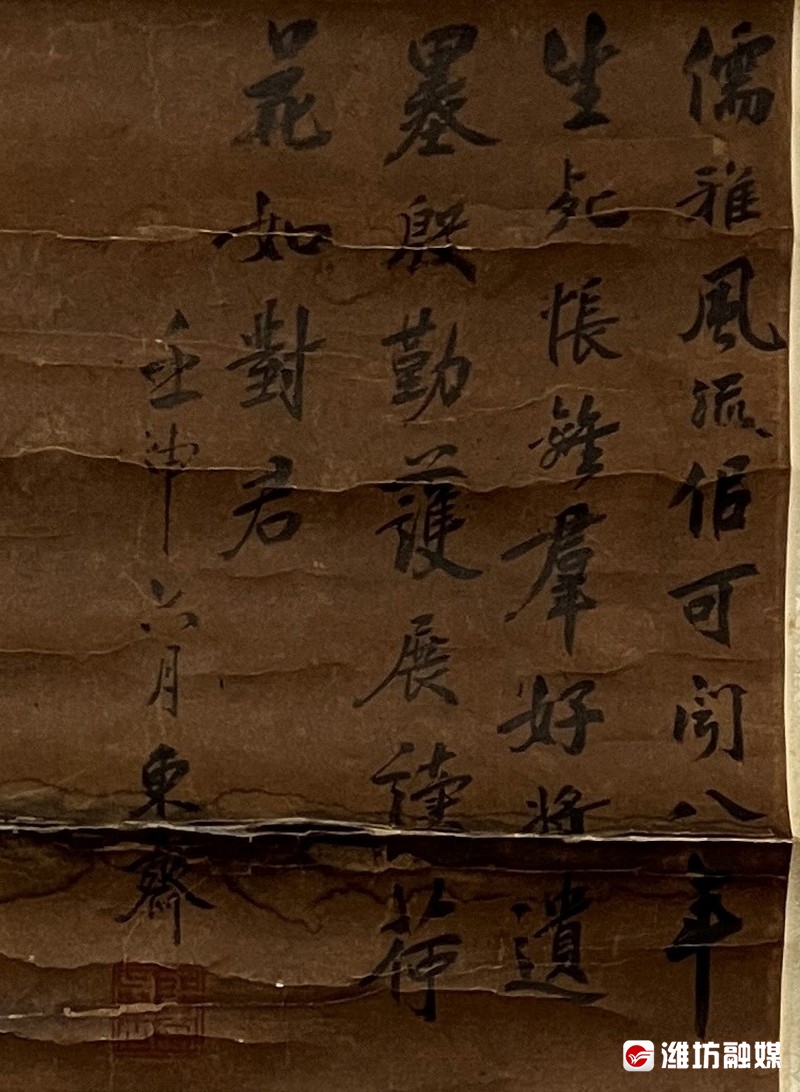 儒雅風流信可聞八年
生死悵離羣好將遺
墨殷勤護展讀荷
花如對君
壬申六月東齋
潍坊融媒